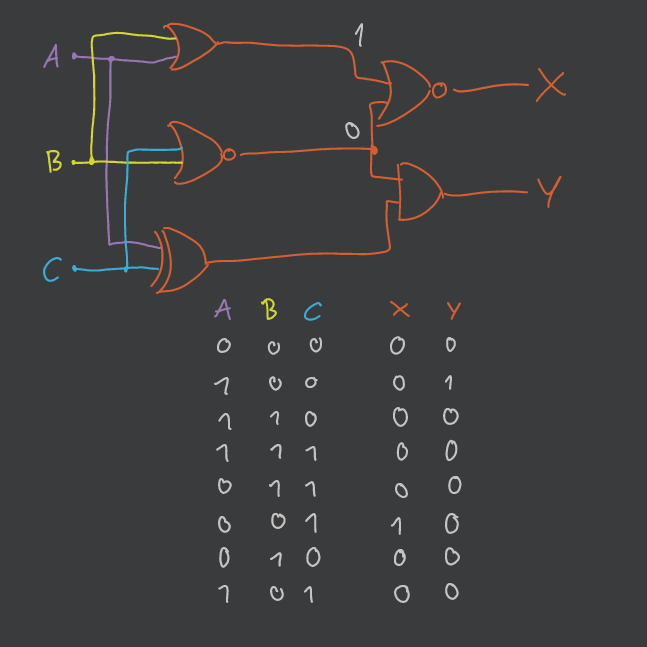 1
A
X
0
B
Y
C
A B C X Y
0 0 0 0 0
1 0 0 0 1
1 1 0 0 0
1 1 1 0 0
0 1 1 0 0
0 0 1 1 0
0 1 0 0 0
1 0 1 0 0